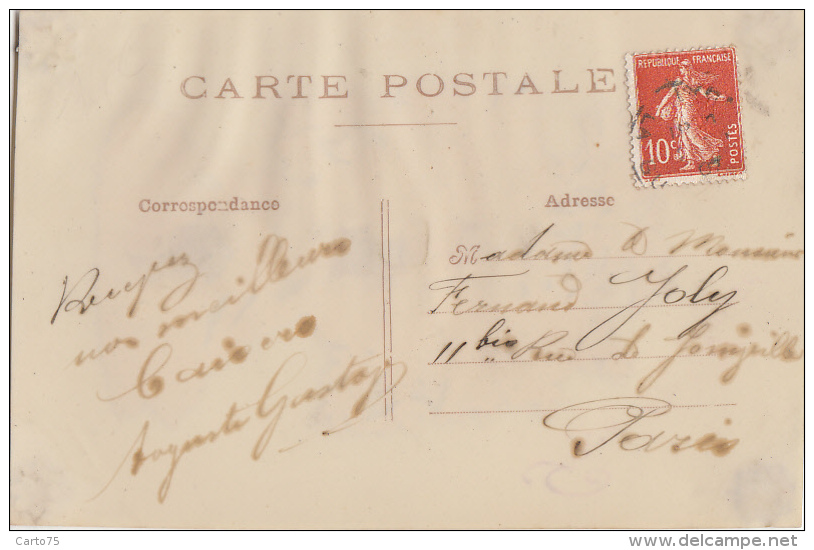 CARTE POSTALE
REPUBLIQUE FRANÇAISE
10c
POSTES
Correspondance
Adresse
Reçevez
nos meilleurs
Baisers
Auguste Gaston
Madame & Monsieur
Fernand Joly
11 bis Rue de Joinville
Paris
Carto75
www.delcampe.net